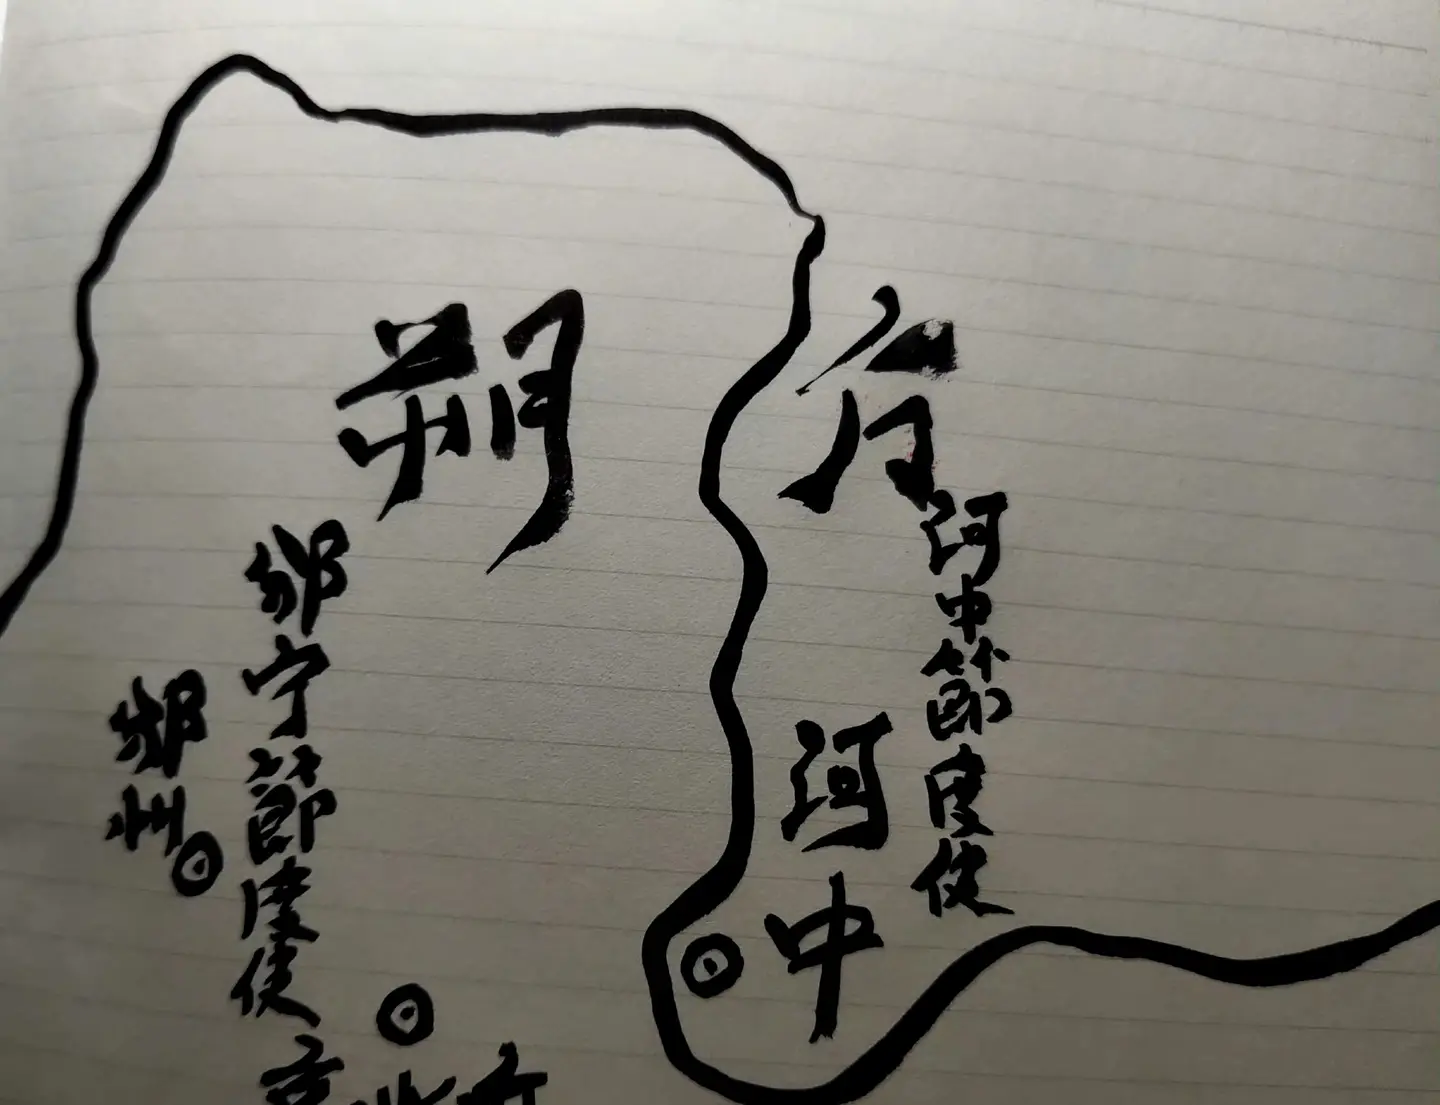 朔方
河中節度使
河中
邠宁節度使
邠州